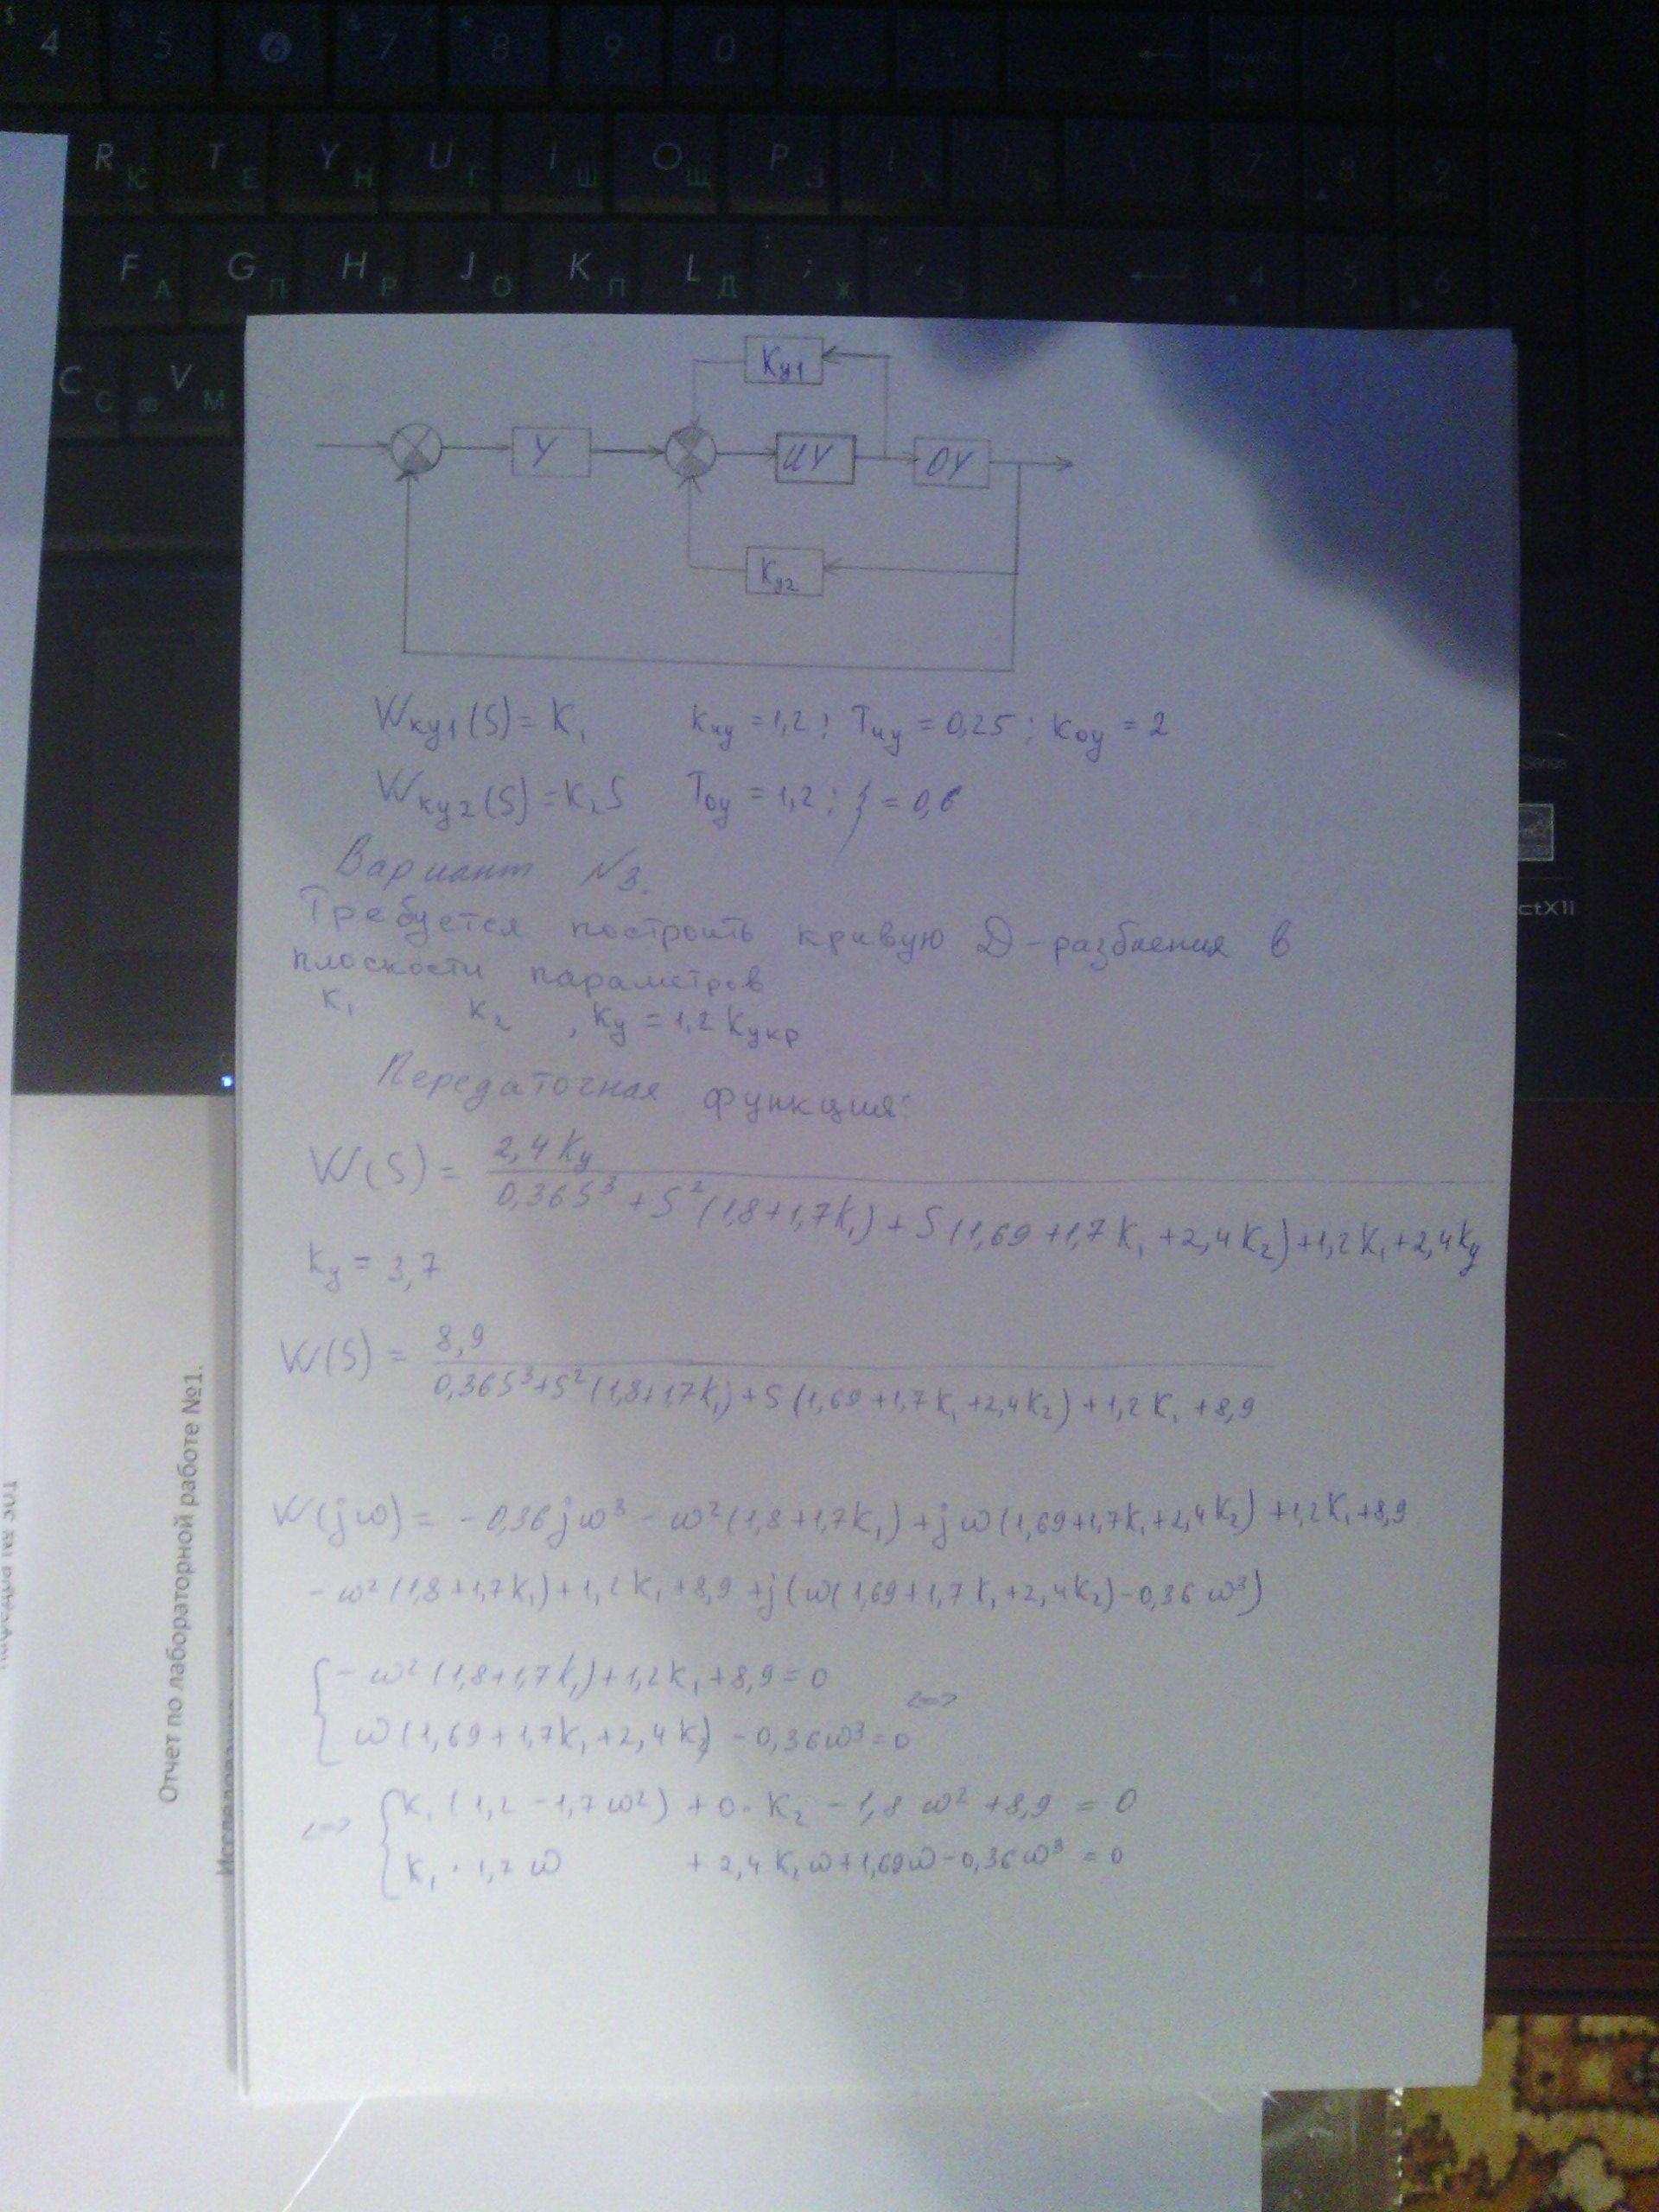 4 5 6 7 8 9 0
R Ю T Е Y Н U Г I Ш O Щ P З
7 8 9
F А G П H Р J О K Л L Д ; Ж
4 5 6
C С V М
Kу1
У ИУ ОУ
Kу2
Wку1(S) = K1 Kиу = 1,2 ; Tиу = 0,25 ; Kоу = 2
Wку2(S) = K2S Tоу = 1,2 ; ξ = 0,6
Вариант №3.
Требуется построить кривую D-разбиения в
плоскости параметров
K1 K2 , Kу = 1,2 Kукр
Передаточная функция:
W(S) = 2,4 Kу / 0,36S³ + S²(1,8+1,7K1) + S(1,69+1,7K1+2,4K2)+1,2K1+2,4Kу
Kу = 3,7
W(S) = 8,9 / 0,36S³+S²(1,8+1,7K1)+S(1,69+1,7K1+2,4K2)+1,2K1+8,9
W(jω) = -0,36jω³ - ω²(1,8+1,7K1)+jω(1,69+1,7K1+2,4K2)+1,2K1+8,9
-ω²(1,8+1,7K1)+1,2K1+8,9+j(ω(1,69+1,7K1+2,4K2)-0,36ω³)
{ -ω²(1,8+1,7K1)+1,2K1+8,9=0
ω(1,69+1,7K1+2,4K2)-0,36ω³=0 <=>
<=> { K1(1,2-1,7ω²)+0·K2-1,8ω²+8,9=0
K1·1,7ω +2,4K2ω+1,69ω-0,36ω³=0
Отчет по лабораторной работе №1.